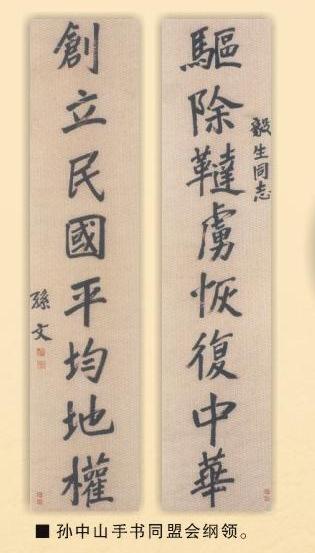 毅生同志
驅除韃虜恢復中華
創立民國平均地權
孫文
■ 孙中山手书同盟会纲领。